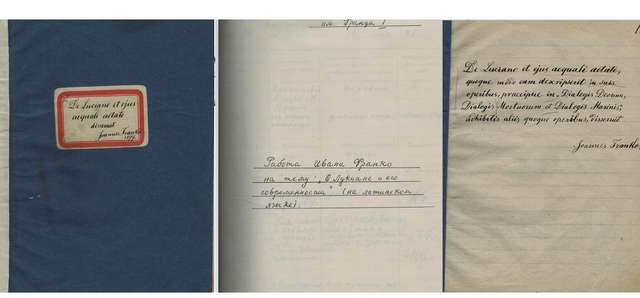 De Luciano et ejus
aequali aetate
disseruit
Joannes Franko
Работа Ивана Франко
на тему: „О Лукиане и его
современности" (на латинском
языке).
De Luciano et ejus aequali aetate,
quoque modo eam descripserit in suis
operibus, praecipue in „Dialogis Deorum,
Dialogis Mortuorum et Dialogis Marinis;
adhibitis aliis quoque operibus, disseruit
Joannes Franko.